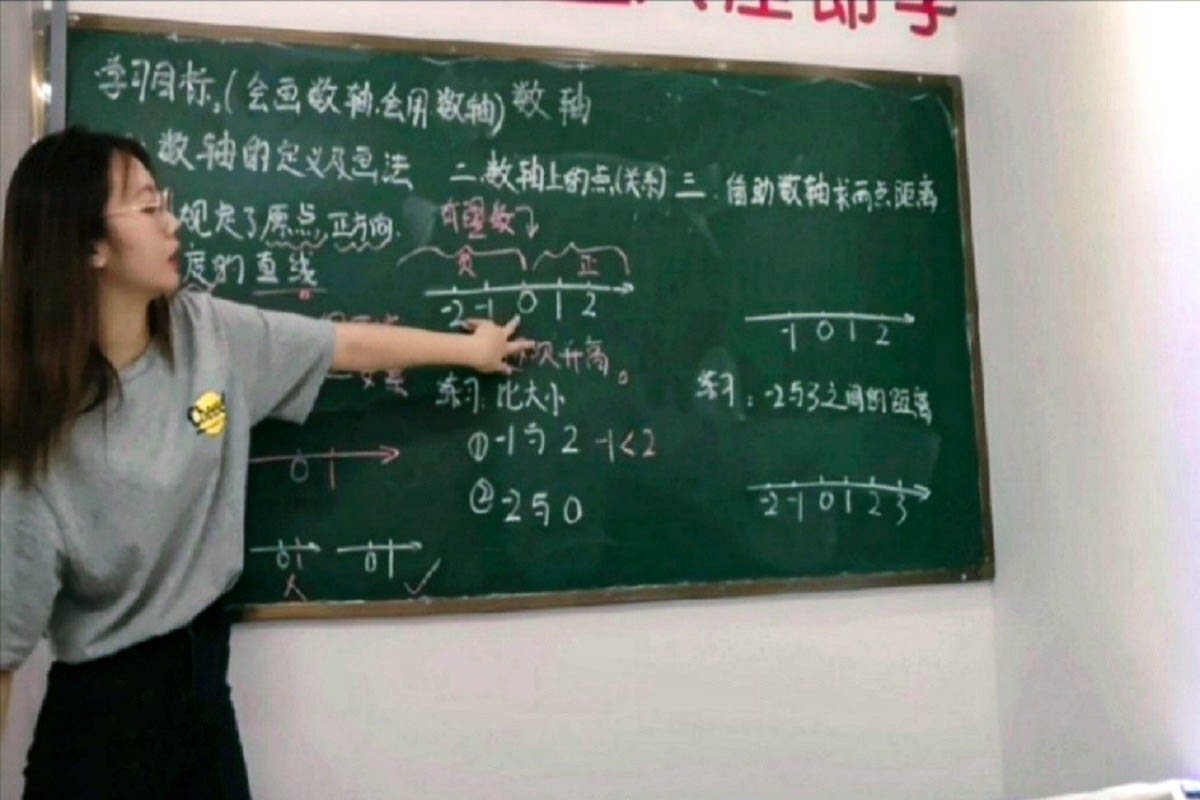 即学
学习目标。(会画数轴.会用数轴) 数轴
数轴的定义及画法
规定了原点,正方向.
度的直线
0 1
0 1
0 1
✓
二.数轴上的点(关系)
有理数
负 正
-2 -1 0 1 2
练习:比大小
① -1与2 -1<2
② -2与0
三.借助数轴求两点距离
-1 0 1 2
练习:-2与3之间的距离
-2 -1 0 1 2 3
Cheer